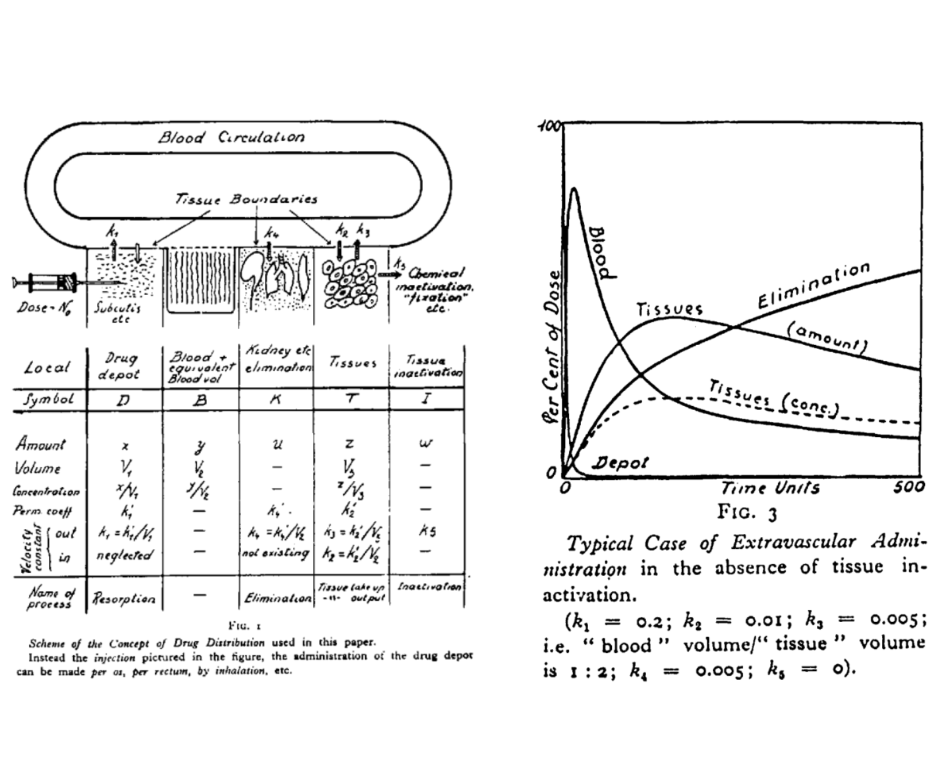 Blood Circulation
Tissue Boundaries
k₁
k₄
k₂ k₃
k₅
Chemical
inactivation,
"fixation"
etc.
Dose = N₀
Subcutis
etc
Local
Drug
depot
Blood +
equivalent
Blood vol
Kidney etc
elimination
Tissues
Tissue
inactivation
Symbol D B K T I
Amount x y u z w
Volume V₁ V₂ — V₃ —
Concentration x/V₁ y/V₂ — z/V₃ —
Perm. coeff k₁' — k₄' k₂' —
Velocity
constant
out k₁ = k₁'/V₁ — k₄ = k₄'/V₂ k₃ = k₂'/V₃ k5
in neglected — not existing k₂ = k₂'/V₂ —
Name of
process
Resorption — Elimination
Tissue take up
-"- output
Inactivation
FIG. 1
Scheme of the Concept of Drug Distribution used in this paper.
Instead the injection pictured in the figure, the administration of the drug depot
can be made per os, per rectum, by inhalation, etc.
100
Per Cent of Dose
Blood
Tissues
Elimination
(amount)
Tissues (conc.)
Depot
0
0 Time Units 500
FIG. 3
Typical Case of Extravascular Admi-
nistration in the absence of tissue in-
activation.
(k₁ = 0.2; k₂ = 0.01; k₃ = 0.005;
i.e. “ blood ” volume/“ tissue ” volume
is 1 : 2; k₄ = 0.005; k₅ = 0).